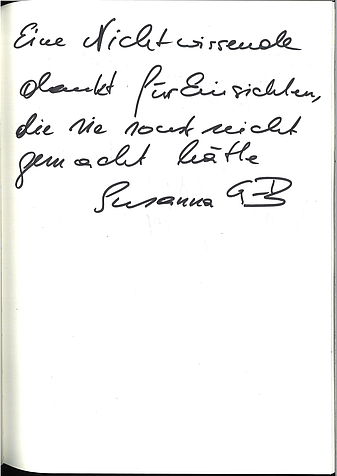 Eine Nichtwissende
dankt für Einsichten,
die sie sonst nicht
gemacht hätte
Susanna GB